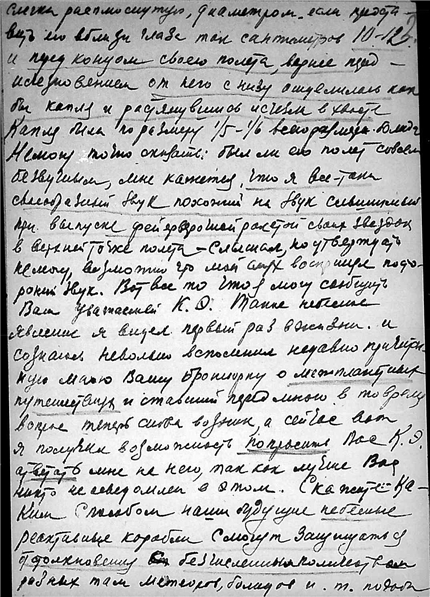 слегка расплюснутую, диаметром, если предста-
вить его вблизи глаза так сантиметров 10-12.
и перед концом своего полета, вернее перед -
исчезновением от него снизу отделилась как
бы капля и растянувшись исчезла в хвосте
Капля была по размеру 1/5-1/6 всего размера
Не могу точно сказать: был ли его полет совсем
безвучным, мне кажется, что я все-таки
своеобразный звук похожий на звук слышимый
при выпуске фейерверочной ракетой своих звездок
в верхней точке полета - слышал, но утверждать
не могу, возможно что мой слух воспринял посто-
ронний звук. Вот все то что я могу сообщить
Вам уважаемый К. Э. Такие небесные
явления я видел первый раз в жизни. и
сознаюсь невольно вспомнил недавно прочитан-
ную мною Вашу брошюрку о межпланетных
путешествиях и ставший предо мною в то время
вопрос теперь снова возник, а сейчас вот
я получил возможность попросить Вас К. Э.
ответить мне на него, так как лучше Вас
никто не осведомлен в этом. Скажите ка-
ким способом наши будущие небесные
реактивные корабли смогут защищаться
от столкновения с безчисленным количеством
разных там метеоров, болидов и. т. подобн